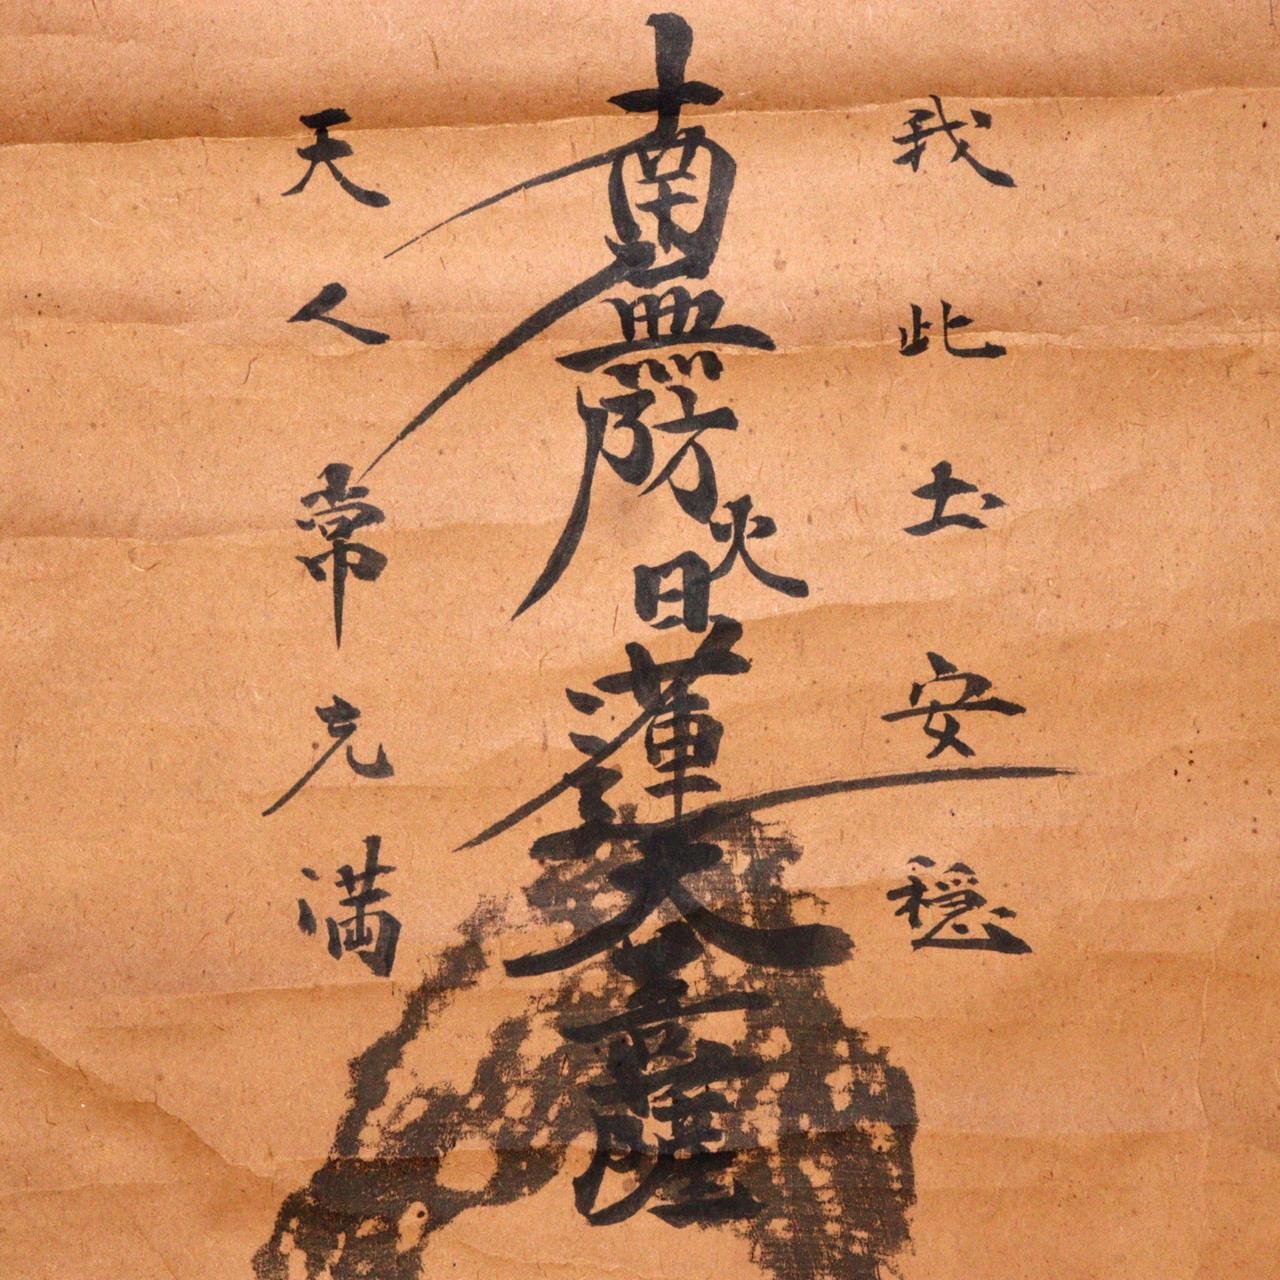 我此土安穏
南無防火日蓮大菩薩
天人常充満